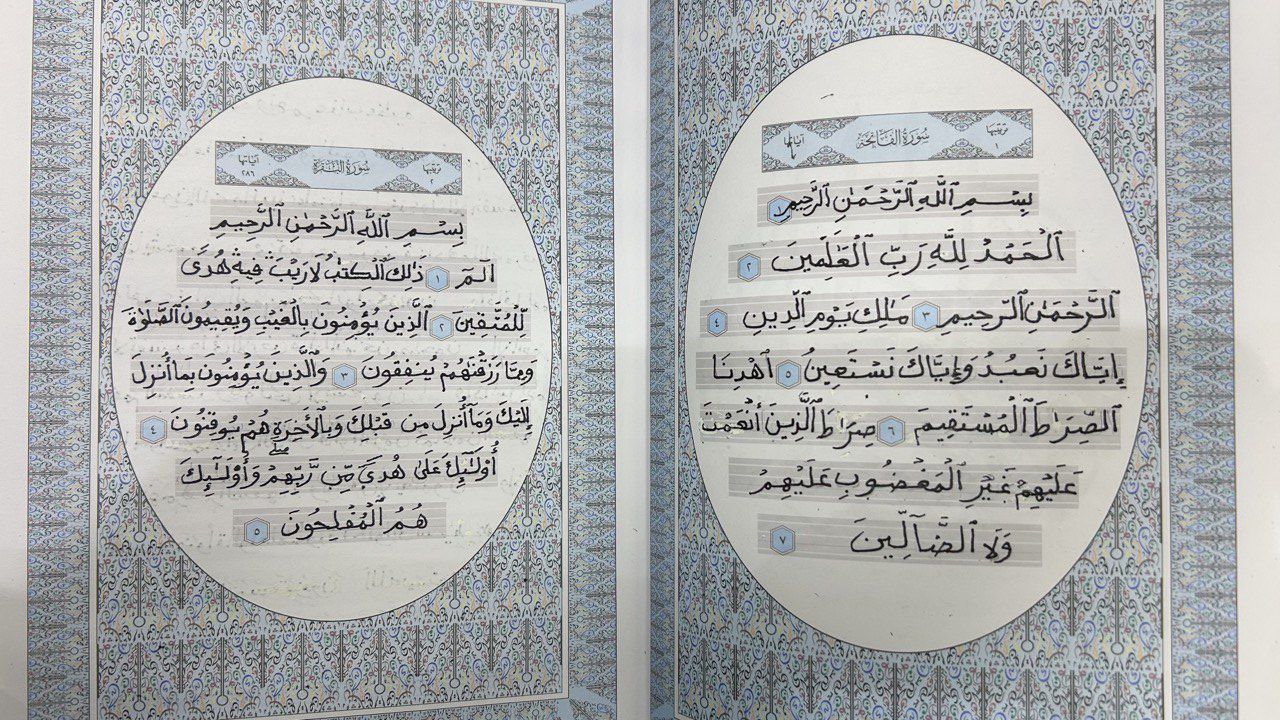 ترتيبها ١ سُورَةُ الفَاتِحَةِ آيَاتُهَا ٧
بِسْمِ ٱللَّهِ ٱلرَّحْمَٰنِ ٱلرَّحِيمِ ١
ٱلْحَمْدُ لِلَّهِ رَبِّ ٱلْعَٰلَمِينَ ٢
ٱلرَّحْمَٰنِ ٱلرَّحِيمِ ٣ مَٰلِكِ يَوْمِ ٱلدِّينِ ٤
إِيَّاكَ نَعْبُدُ وَإِيَّاكَ نَسْتَعِينُ ٥ ٱهْدِنَا
ٱلصِّرَٰطَ ٱلْمُسْتَقِيمَ ٦ صِرَٰطَ ٱلَّذِينَ أَنْعَمْتَ
عَلَيْهِمْ غَيْرِ ٱلْمَغْضُوبِ عَلَيْهِمْ
وَلَا ٱلضَّآلِّينَ ٧
ترتيبها ٢ سُورَةُ البَقَرَةِ آياتها ٢٨٦
بِسْمِ ٱللَّهِ ٱلرَّحْمَٰنِ ٱلرَّحِيمِ
الٓمٓ ١ ذَٰلِكَ ٱلْكِتَٰبُ لَا رَيْبَ ۛ فِيهِ ۛ هُدًى
لِّلْمُتَّقِينَ ٢ ٱلَّذِينَ يُؤْمِنُونَ بِٱلْغَيْبِ وَيُقِيمُونَ ٱلصَّلَوٰةَ
وَمِمَّا رَزَقْنَٰهُمْ يُنفِقُونَ ٣ وَٱلَّذِينَ يُؤْمِنُونَ بِمَآ أُنزِلَ
إِلَيْكَ وَمَآ أُنزِلَ مِن قَبْلِكَ وَبِٱلْأَخِرَةِ هُمْ يُوقِنُونَ ٤
أُو۟لَٰٓئِكَ عَلَىٰ هُدًى مِّن رَّبِّهِمْ ۖ وَأُو۟لَٰٓئِكَ
هُمُ ٱلْمُفْلِحُونَ ٥